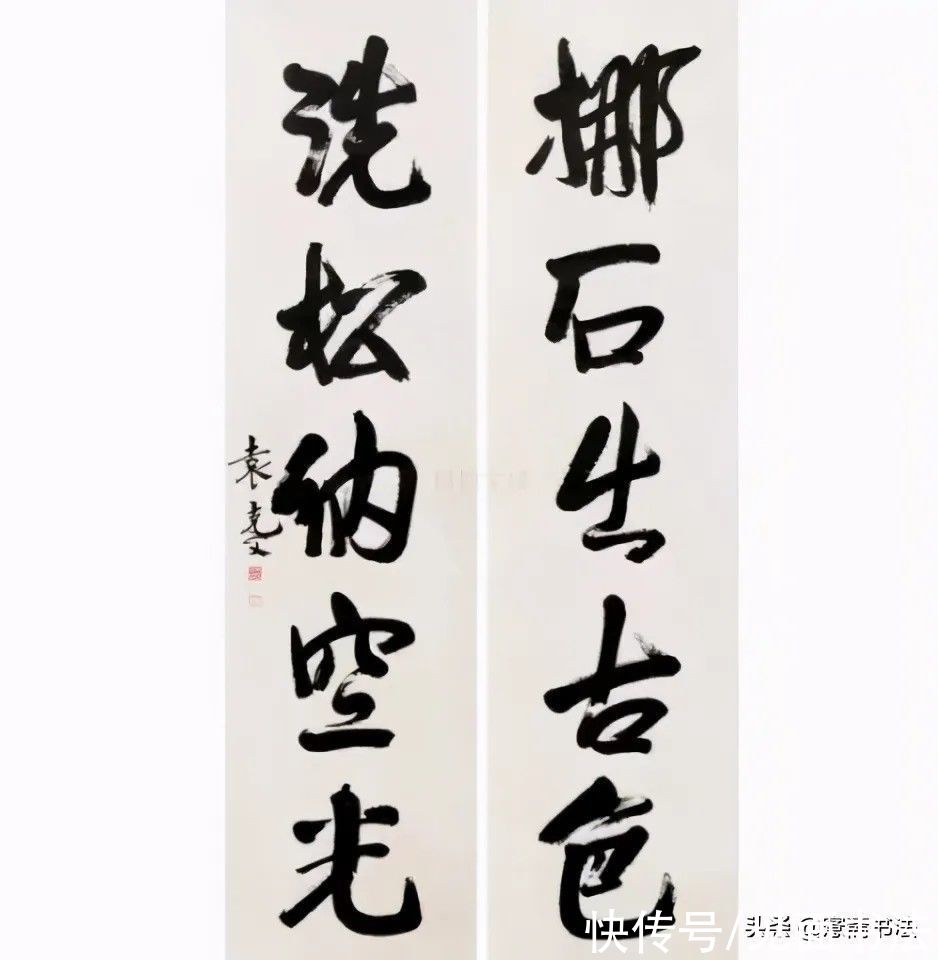 挪石生古色
洗松納空光
袁克文
快传号/
头条
书法